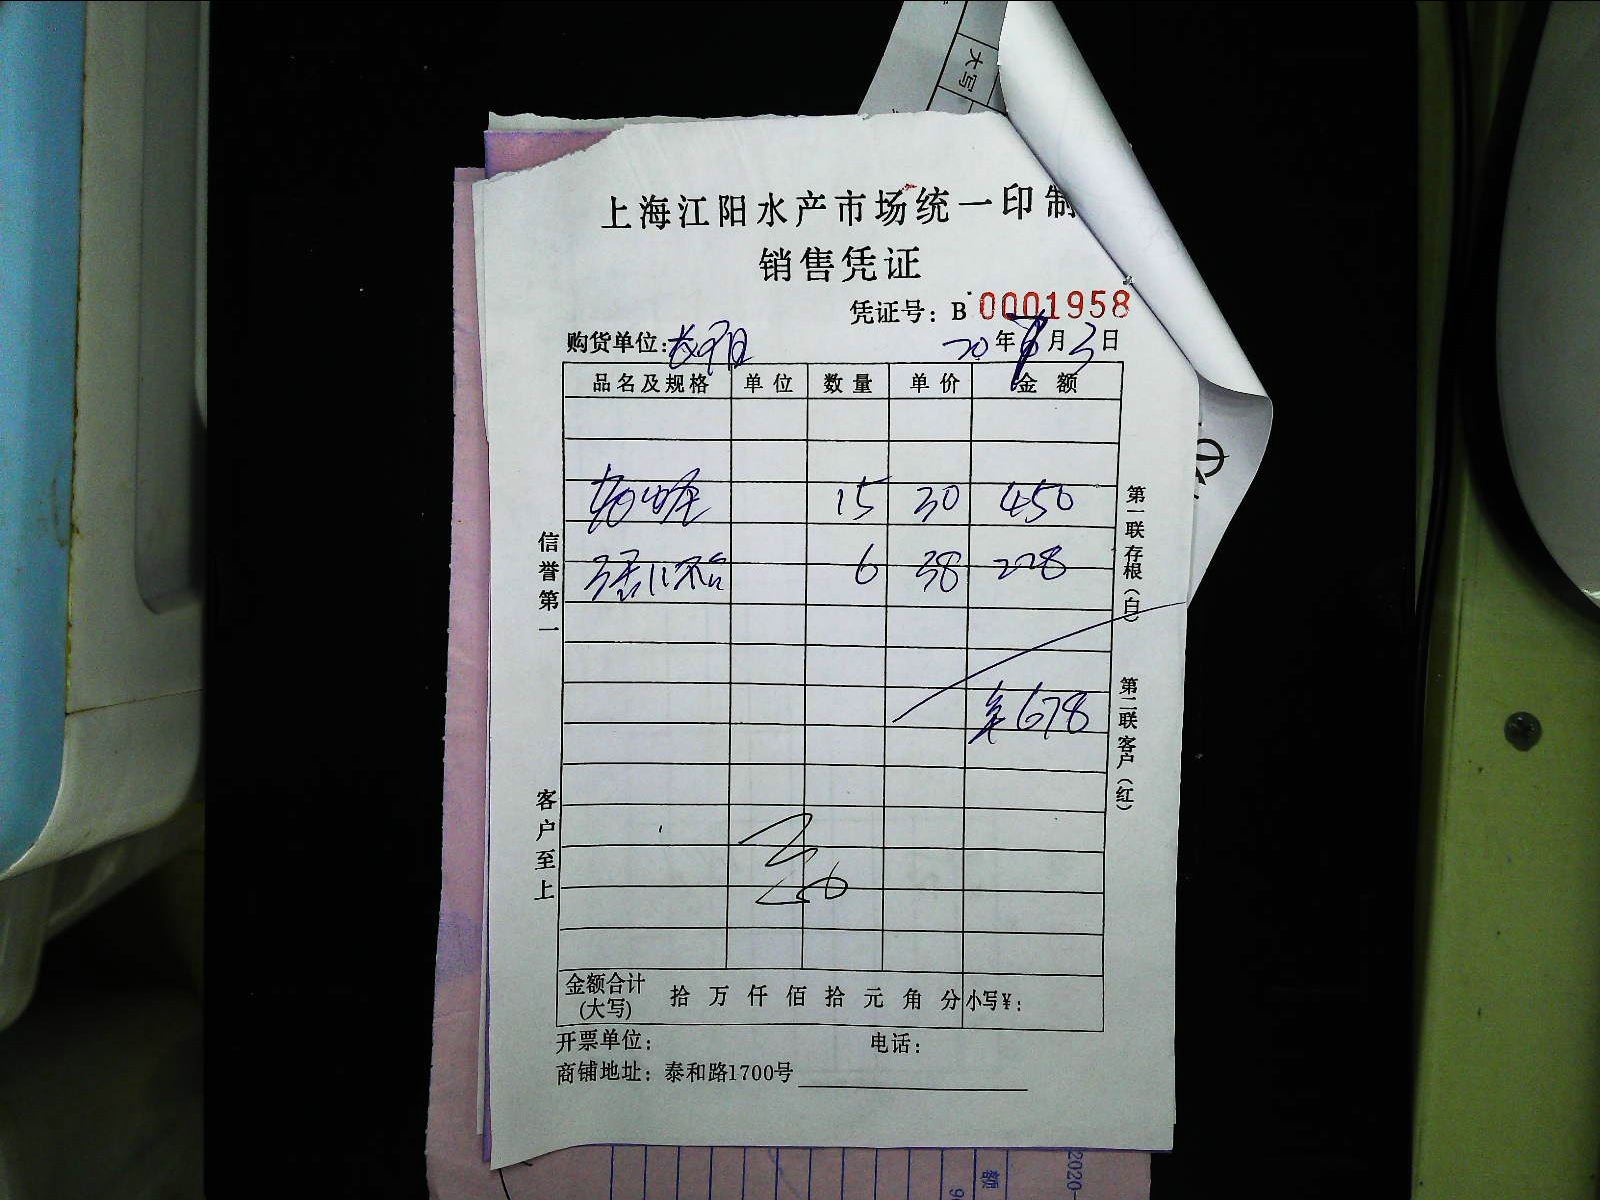 大写
上海江阳水产市场统一印制
销售凭证
凭证号：B 0001958
购货单位：
20年 月3日
品名及规格 单位 数量 单价 金额
15 30 450
6 38 228
678
信誉第一
客户至上
第一联存根（白）
第二联客户（红）
金额合计(大写) 拾万仟佰拾元角分 小写¥：
开票单位： 电话：
商铺地址：泰和路1700号
额
2020-